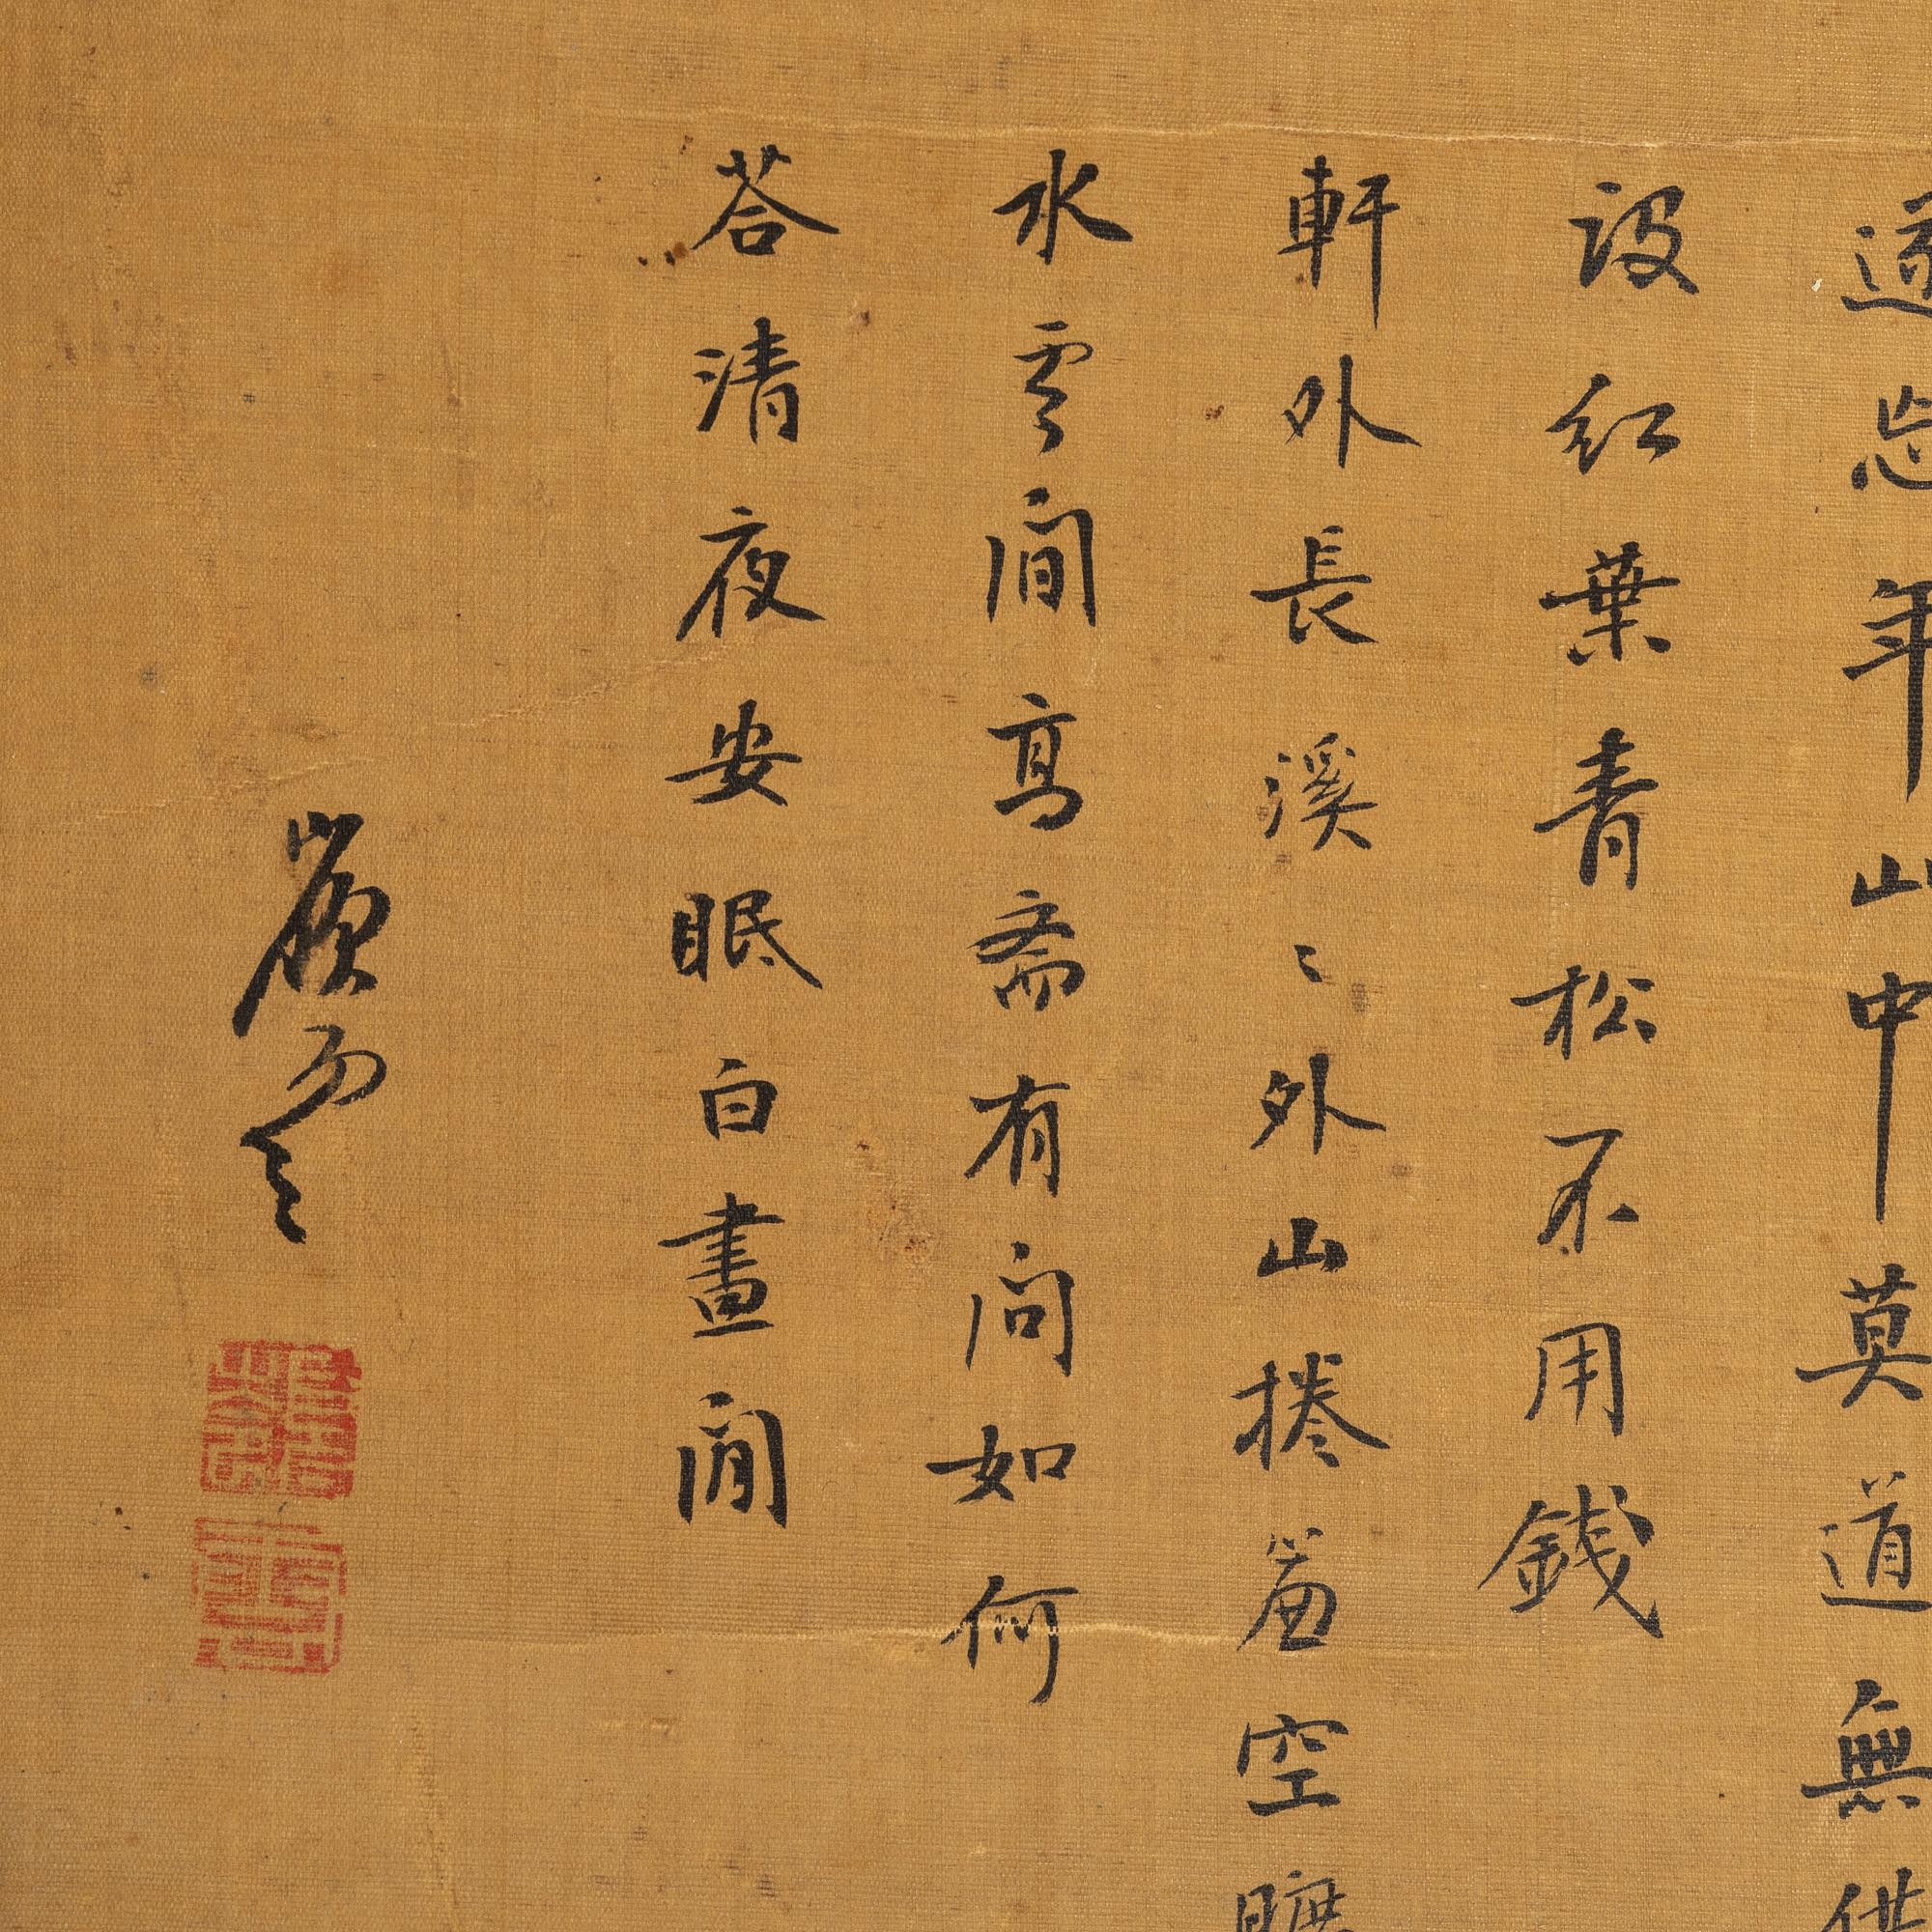 道忘年山中莫道無供
設紅葉青松不用錢
軒外長溪〻外山捲簾空曠
水雲間高齋有問如何
荅清夜安眠白晝閒